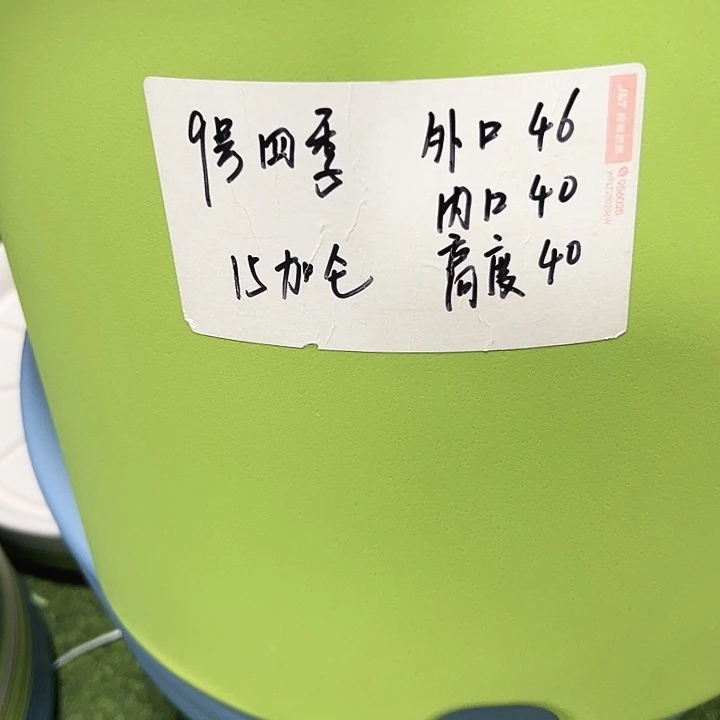 9号四季
15加仑
外口 46
内口 40
高度 40
J&T
956025